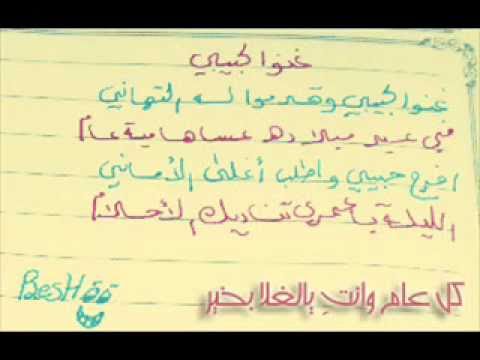 غنوا لحبيبي
غنوا لحبيبي وقدموا له التهاني
في عيد ميلاده عساها مية عام
افرح حبيبي واطلب أغلى الأماني
الليلة يا عمري تناديك الأحلام
BesHöö
كل عام وانتِ يالغلا بخير